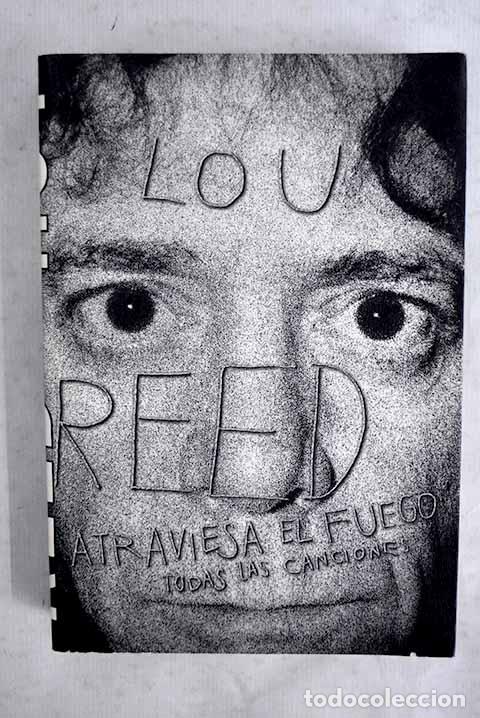 LOU
REED
ATRAVIESA EL FUEGO
TODAS LAS CANCIONES
todocoleccion